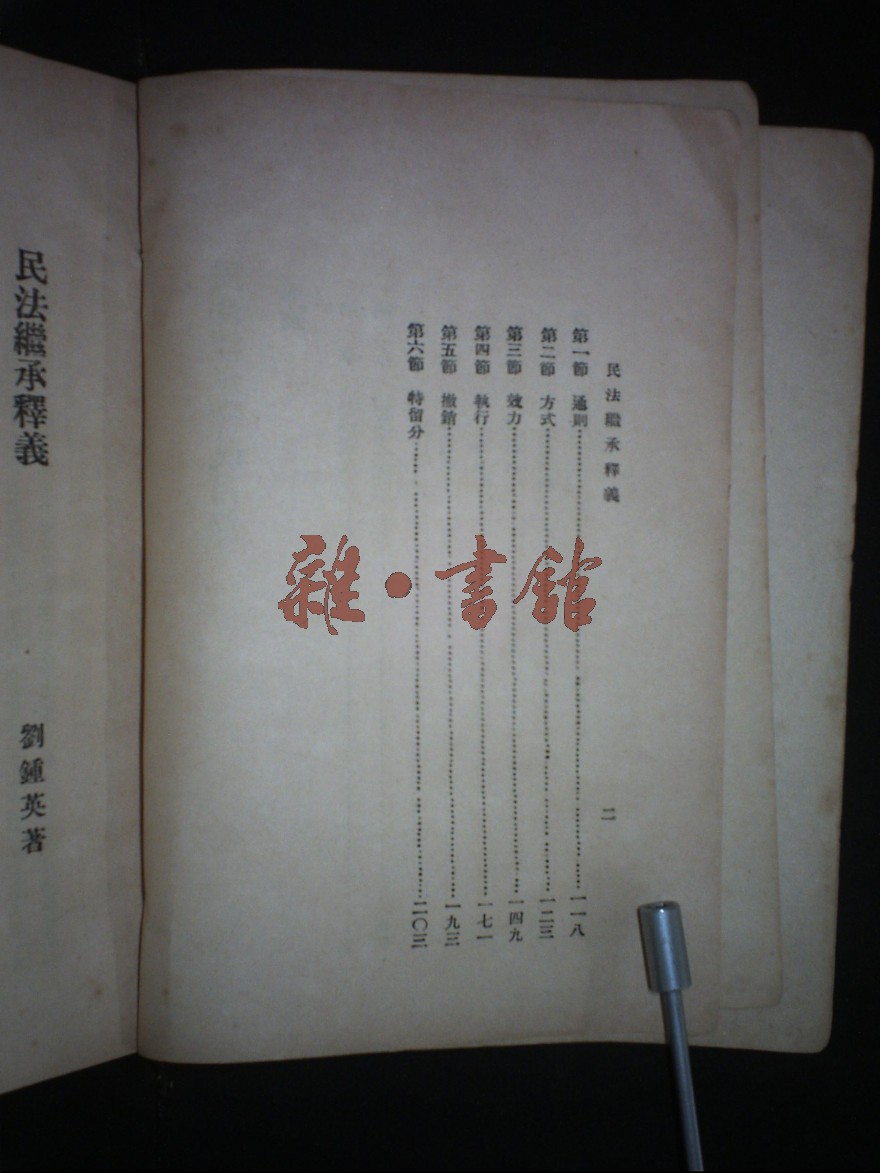 民法繼承釋義 二
第一節 通則……一一八
第二節 方式……一二三
第三節 效力……一四九
第四節 執行……一七一
第五節 撤銷……一九三
第六節 特留分……二〇三
民法繼承釋義
劉鍾英著
雜•書館